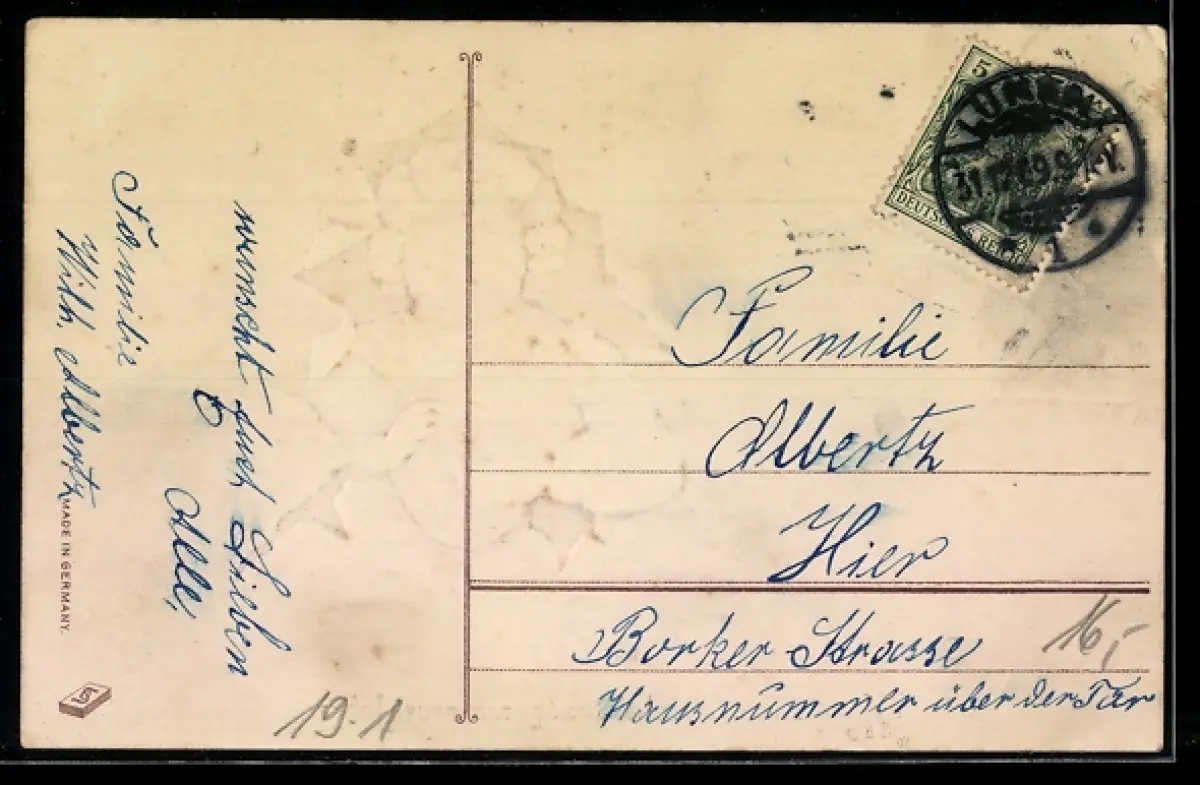 wünscht Euch Lieben
Alle,
Familie
Wilh. Albertz
MADE IN GERMANY.
19.1
5
DEUTSCHES REICH
31.12.09.9
Familie
Albertz
Hier
Borker Strasse
Hausnummer über der Tür
16,-